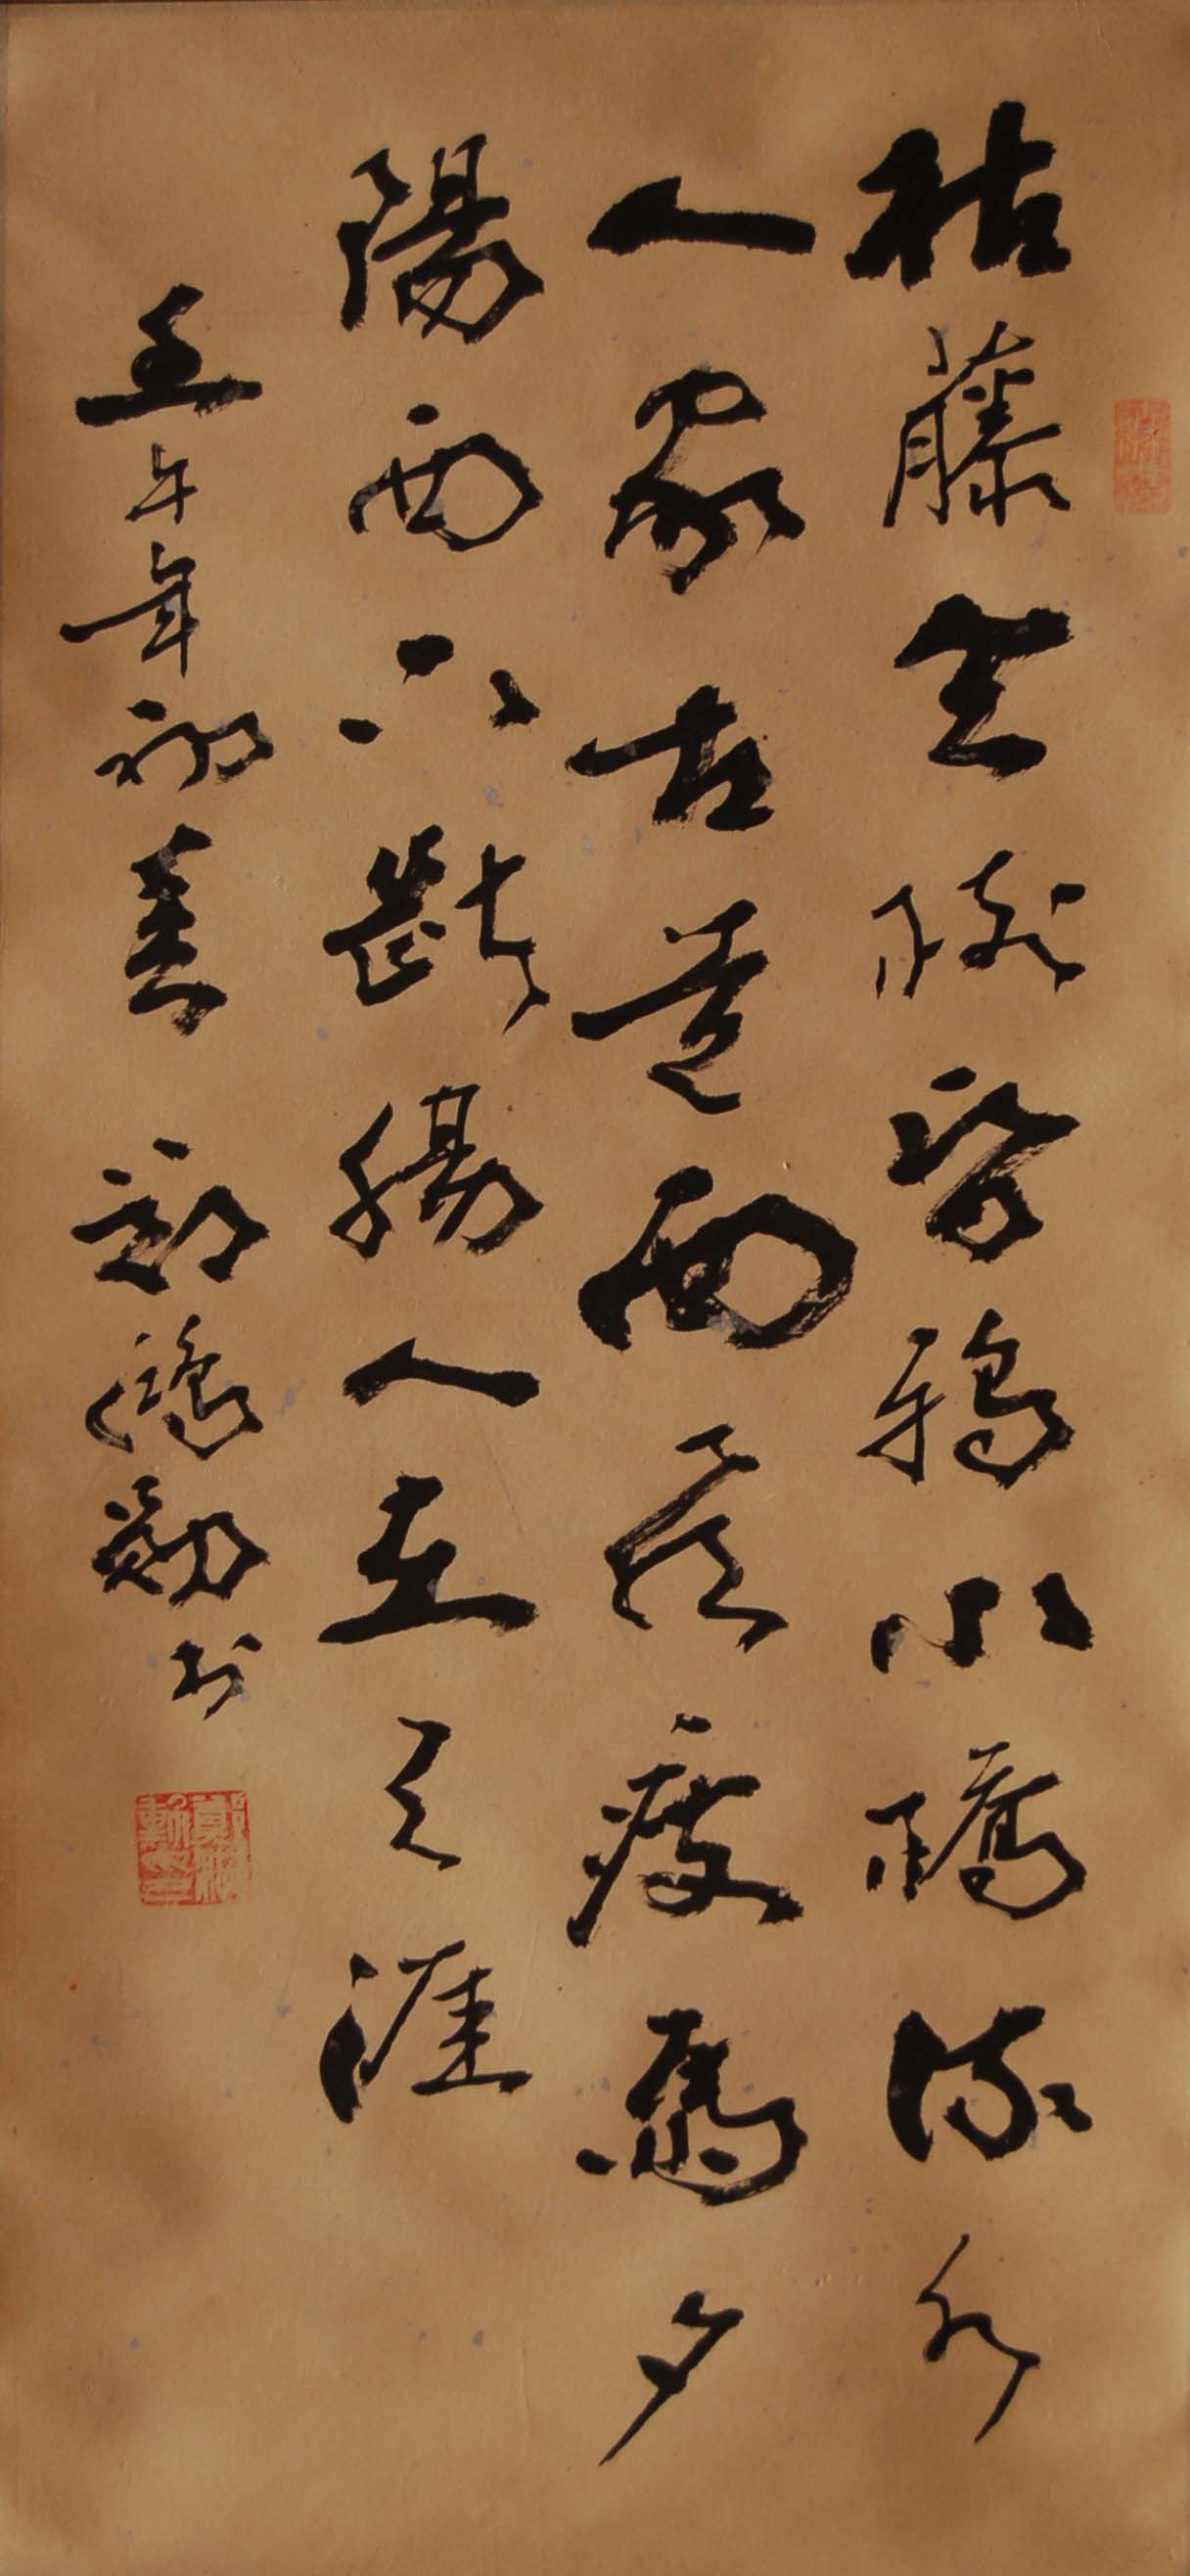 枯藤老樹昏鴉小橋流水
人家古道西風瘦馬夕
陽西下斷腸人在天涯
壬午年初春 鄭鴻勛书